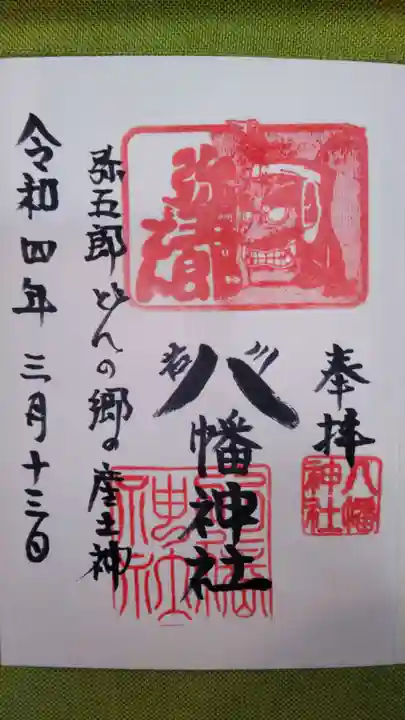 奉拝
八幡神社
八幡神社
弥五郎どんの郷の産土神
令和四年三月十三日